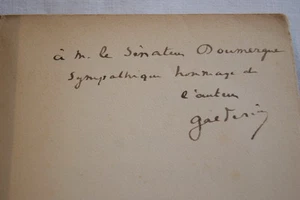 à M. le Sénateur Doumergue
Sympathique hommage de
l'auteur